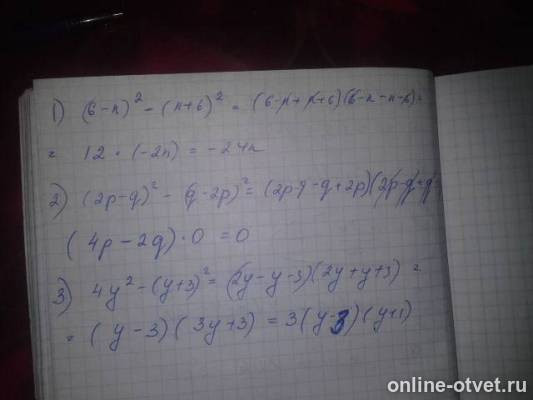 1) (6-n)² - (n+6)² = (6-n+n+6)(6-n-n-6)=
= 12 · (-2n) = -24n
2) (2p-q)² - (q-2p)² = (2p-q-q+2p)(2p-q+q-
(4p-2q)·0 = 0
3) 4y² - (y+3)² = (2y-y-3)(2y+y+3) =
= (y-3)(3y+3) = 3(y-3)(y+1)
online-otvet.ru